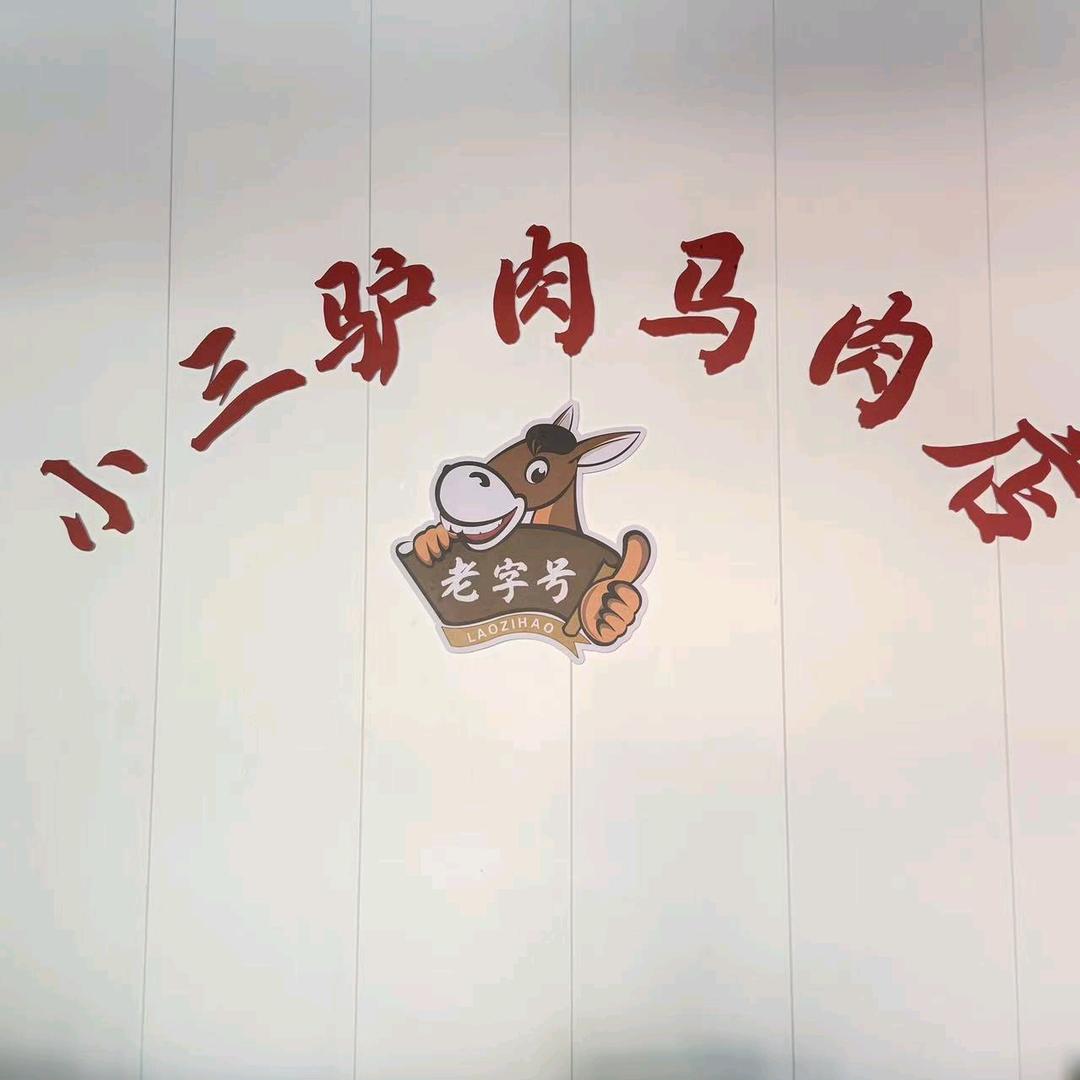 小三驴肉马肉店
老字号
LAOZIHAO